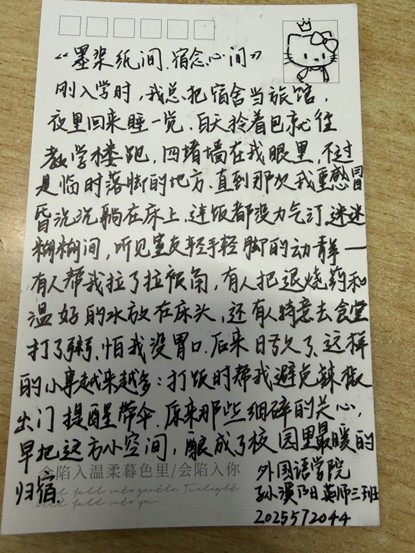 《墨染纸间,宿念心间》
刚入学时,我总把宿舍当旅馆,
夜里回来睡一觉,白天拎着包就往
教学楼跑,四堵墙在我眼里,不过
是临时落脚的地方.直到那次我重感冒
昏沉沉躺在床上,连饭都没力气订,迷迷
糊糊间,听见室友轻手轻脚的动静—
有人帮我拉了拉被角,有人把退烧药和
温好的水放在床头,还有人特意去食堂
打了粥,怕我没胃口.后来日子久了,这样
的小事越来越多:打饭时帮我避免辣椒
出门提醒带伞.原来那些细碎的关心,
早把这方小空间,酿成了校园里最暖的
归宿.
会陷入温柔暮色里/会陷入你
外国语学院
英师三班
2025572044